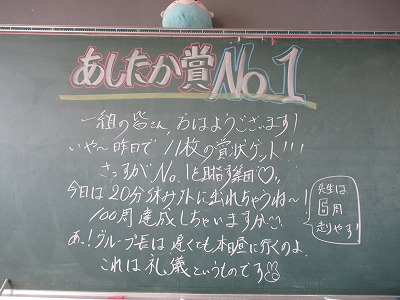 あしたか賞No.1
一組の皆さん、おはようございます!
いや〜昨日で11枚の賞状ゲット!!!
さっすがNo.1を目指す集団♡。
今日は20分休み外に出れちゃうね〜!
100周達成しちゃいますか♡
あ、!グループ長は遅くても本日昼に行くのよ
これは礼儀というものです
先生は
6周
走りやす!